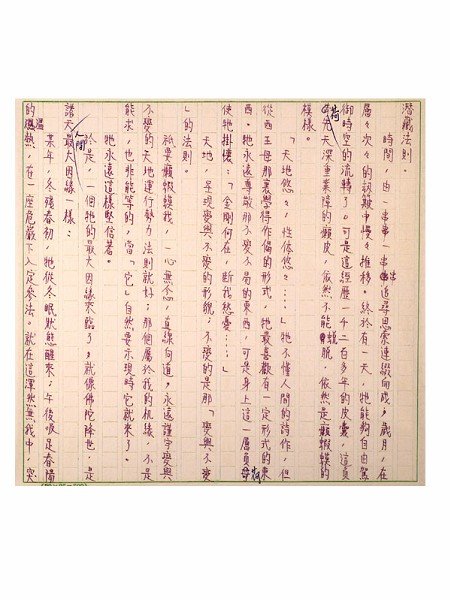 潛藏法則。
時間，由一串串一串串追尋思索連綴而成，歲月，在
層々次々的視聽中慢々推移。終於有一天，牠能夠自由駕
御時空的流轉了。可是這經歷一千二百多年的皮囊，這負荷
先天深重業障的癩皮，依然不能脫，依然是癩蝦蟆的
模樣。
「天地悠々，性依悠々……」牠不懂人間的詩作，但
從西王母那裏學得作偈的形式。牠最喜歡有一定形式的東
西。牠永遠尊敬那不變不易的東西，可是身上這一層負荷
使牠掛懷：「金剛何在，斷我愁憂……」
天地，呈現變與不變的形貌；不變的是那「變與不變
」的法則。
祇要癩蝦蟆我，一心無念，直線向道，永遠謹守變與
不變的天地運行勢力法則就好；那個屬於我的机緣，不是
能求，也非能等的，當「它」自然要示現時它就來了。
牠永遠這樣堅信著。
於是，一個牠的最大因緣來臨了，就像佛陀降世，是
諸天人間最大因緣一樣：
某年，冬殘春初，牠從冬眠狀態醒來；午後暖是春陽
的溫熱，在一座危巖下入定參法。就在這渾然無我中，突